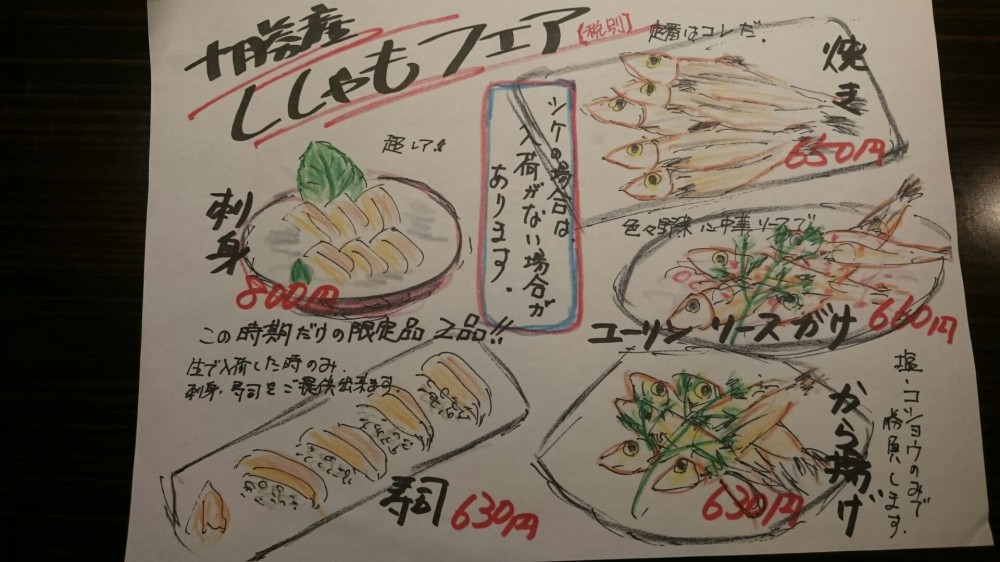 十勝産
ししゃもフェア
【税別】
定番はコレだ.
焼き
650円
シケの場合は、
入荷がない場合が
あります.
超レア!!
刺身
800円
この時期だけの限定品 2品!!
生で入荷した時のみ.
刺身・寿司をご提供出来ます.
寿司
630円
色々野菜 中華ソースで
ユーリンソースがけ
660円
から揚げ
630円
塩・コショウのみで
勝負します.